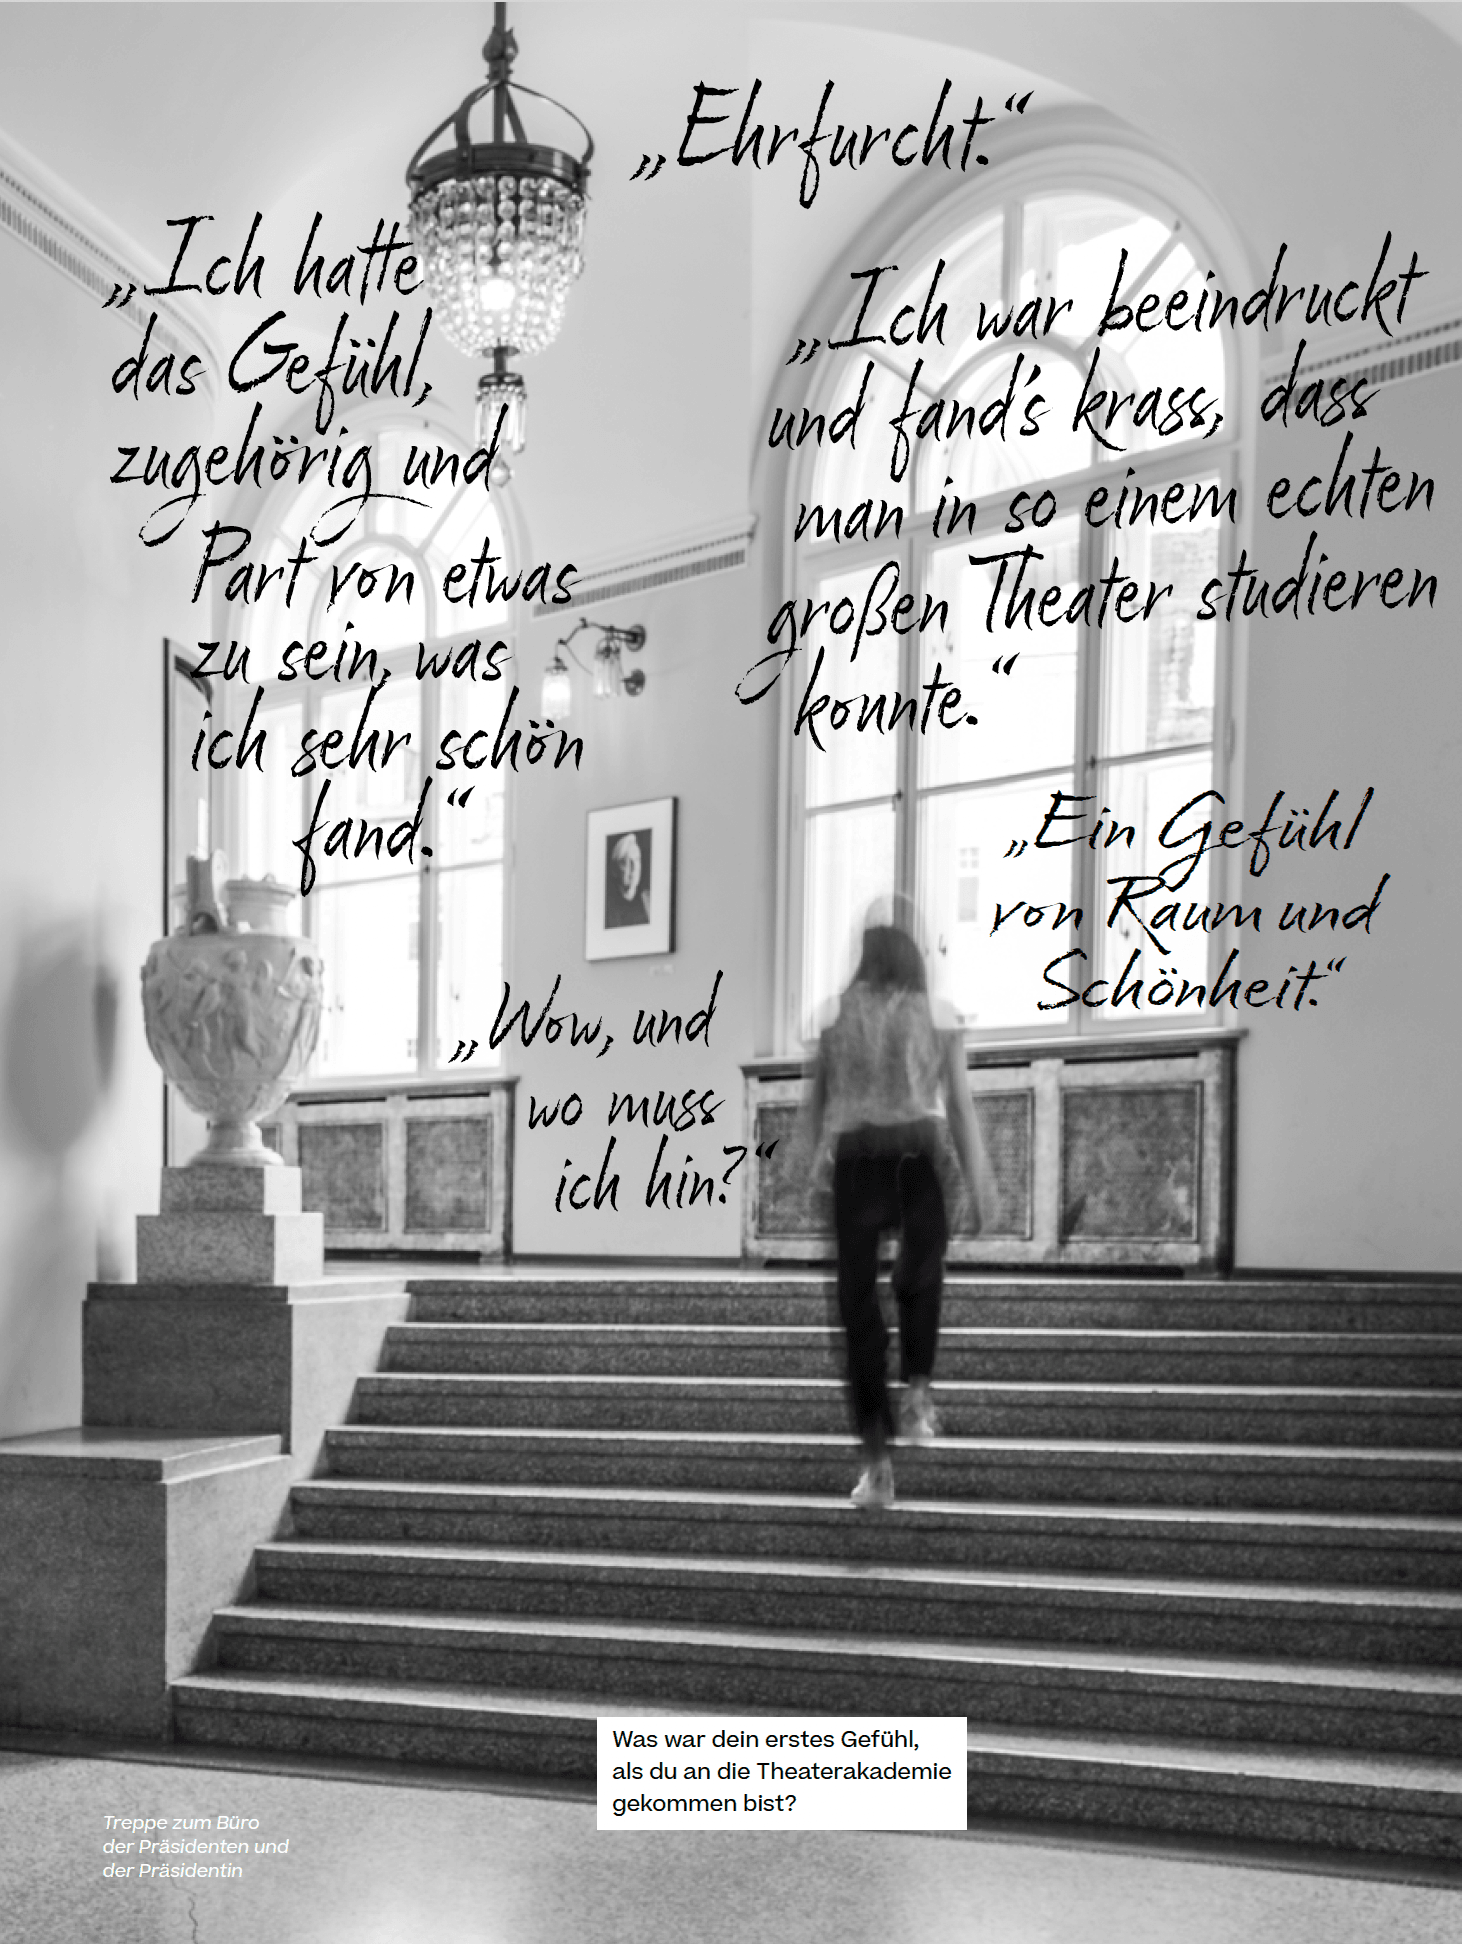 „Ehrfurcht.“
„Ich hatte
das Gefühl,
zugehörig und
Part von etwas
zu sein, was
ich sehr schön
fand.“
„Ich war beeindruckt
und fand’s krass, dass
man in so einem echten
großen Theater studieren
konnte.“
„Ein Gefühl
von Raum und
Schönheit.“
„Wow, und
wo muss
ich hin?“
Was war dein erstes Gefühl,
als du an die Theaterakademie
gekommen bist?
Treppe zum Büro
der Präsidenten und
der Präsidentin